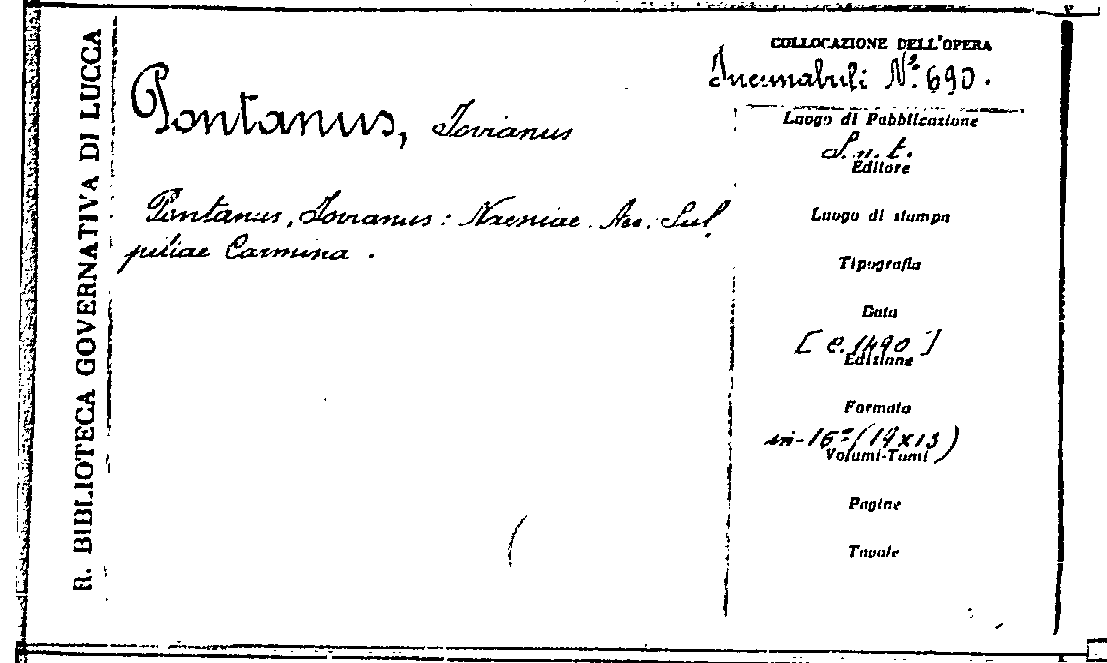 R. BIBLIOTECA GOVERNATIVA DI LUCCA
Pontanus, Iovianus
Pontanus, Iovianus: Naeniae. Au. Sul
piliae Carmina.
COLLOCAZIONE DELL'OPERA
Incunabuli Nº. 690.
Luogo di Pubblicazione
S.n.t.
Editore
Luogo di stampa
Tipografia
Data
[c. 1490]
Edizione
Formato
in-16º (19x13)
Volumi-Tomi
Pagine
Tavole